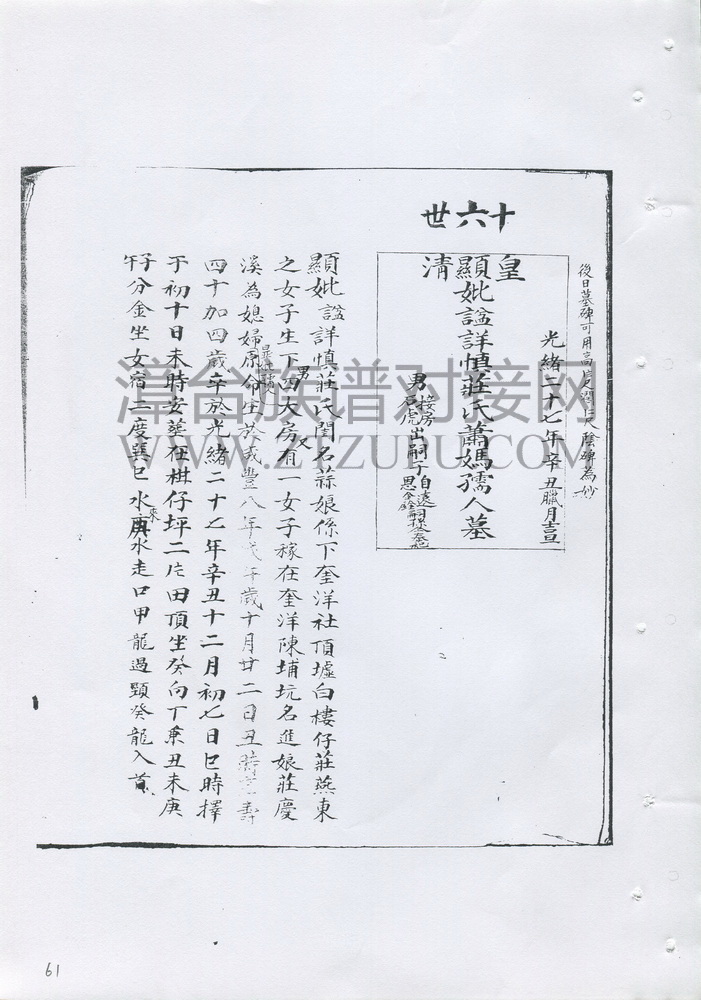 後日墓碑可用高
陰碑為妙
十六世
光緒二十七年辛丑臘月吉旦
皇清
顯妣謚詳慎莊氏蕭媽孺人墓
男
接房
虎
出嗣子
自遠
思
顯妣謚詳慎莊氏閨名蒜娘係下奎洋社頂墟白樓仔莊燕東
之女子生下四大房又有一女子稼在奎洋陳埔坑名進娘莊慶
男
溪為媳婦原命生於咸豐八年戊午歲十月廿二日丑時壽
四十加四歲卒於光緒二十七年辛丑十二月初七日巳時擇
于初十日未時安葬在棋仔坪二坵田頂坐癸向丁兼丑未庚
子午分金坐女宿二度巽巳水來庚水走口甲龍過頸癸龍入首
漳台族谱对接网
WWW.ZTZUPU.COM
61